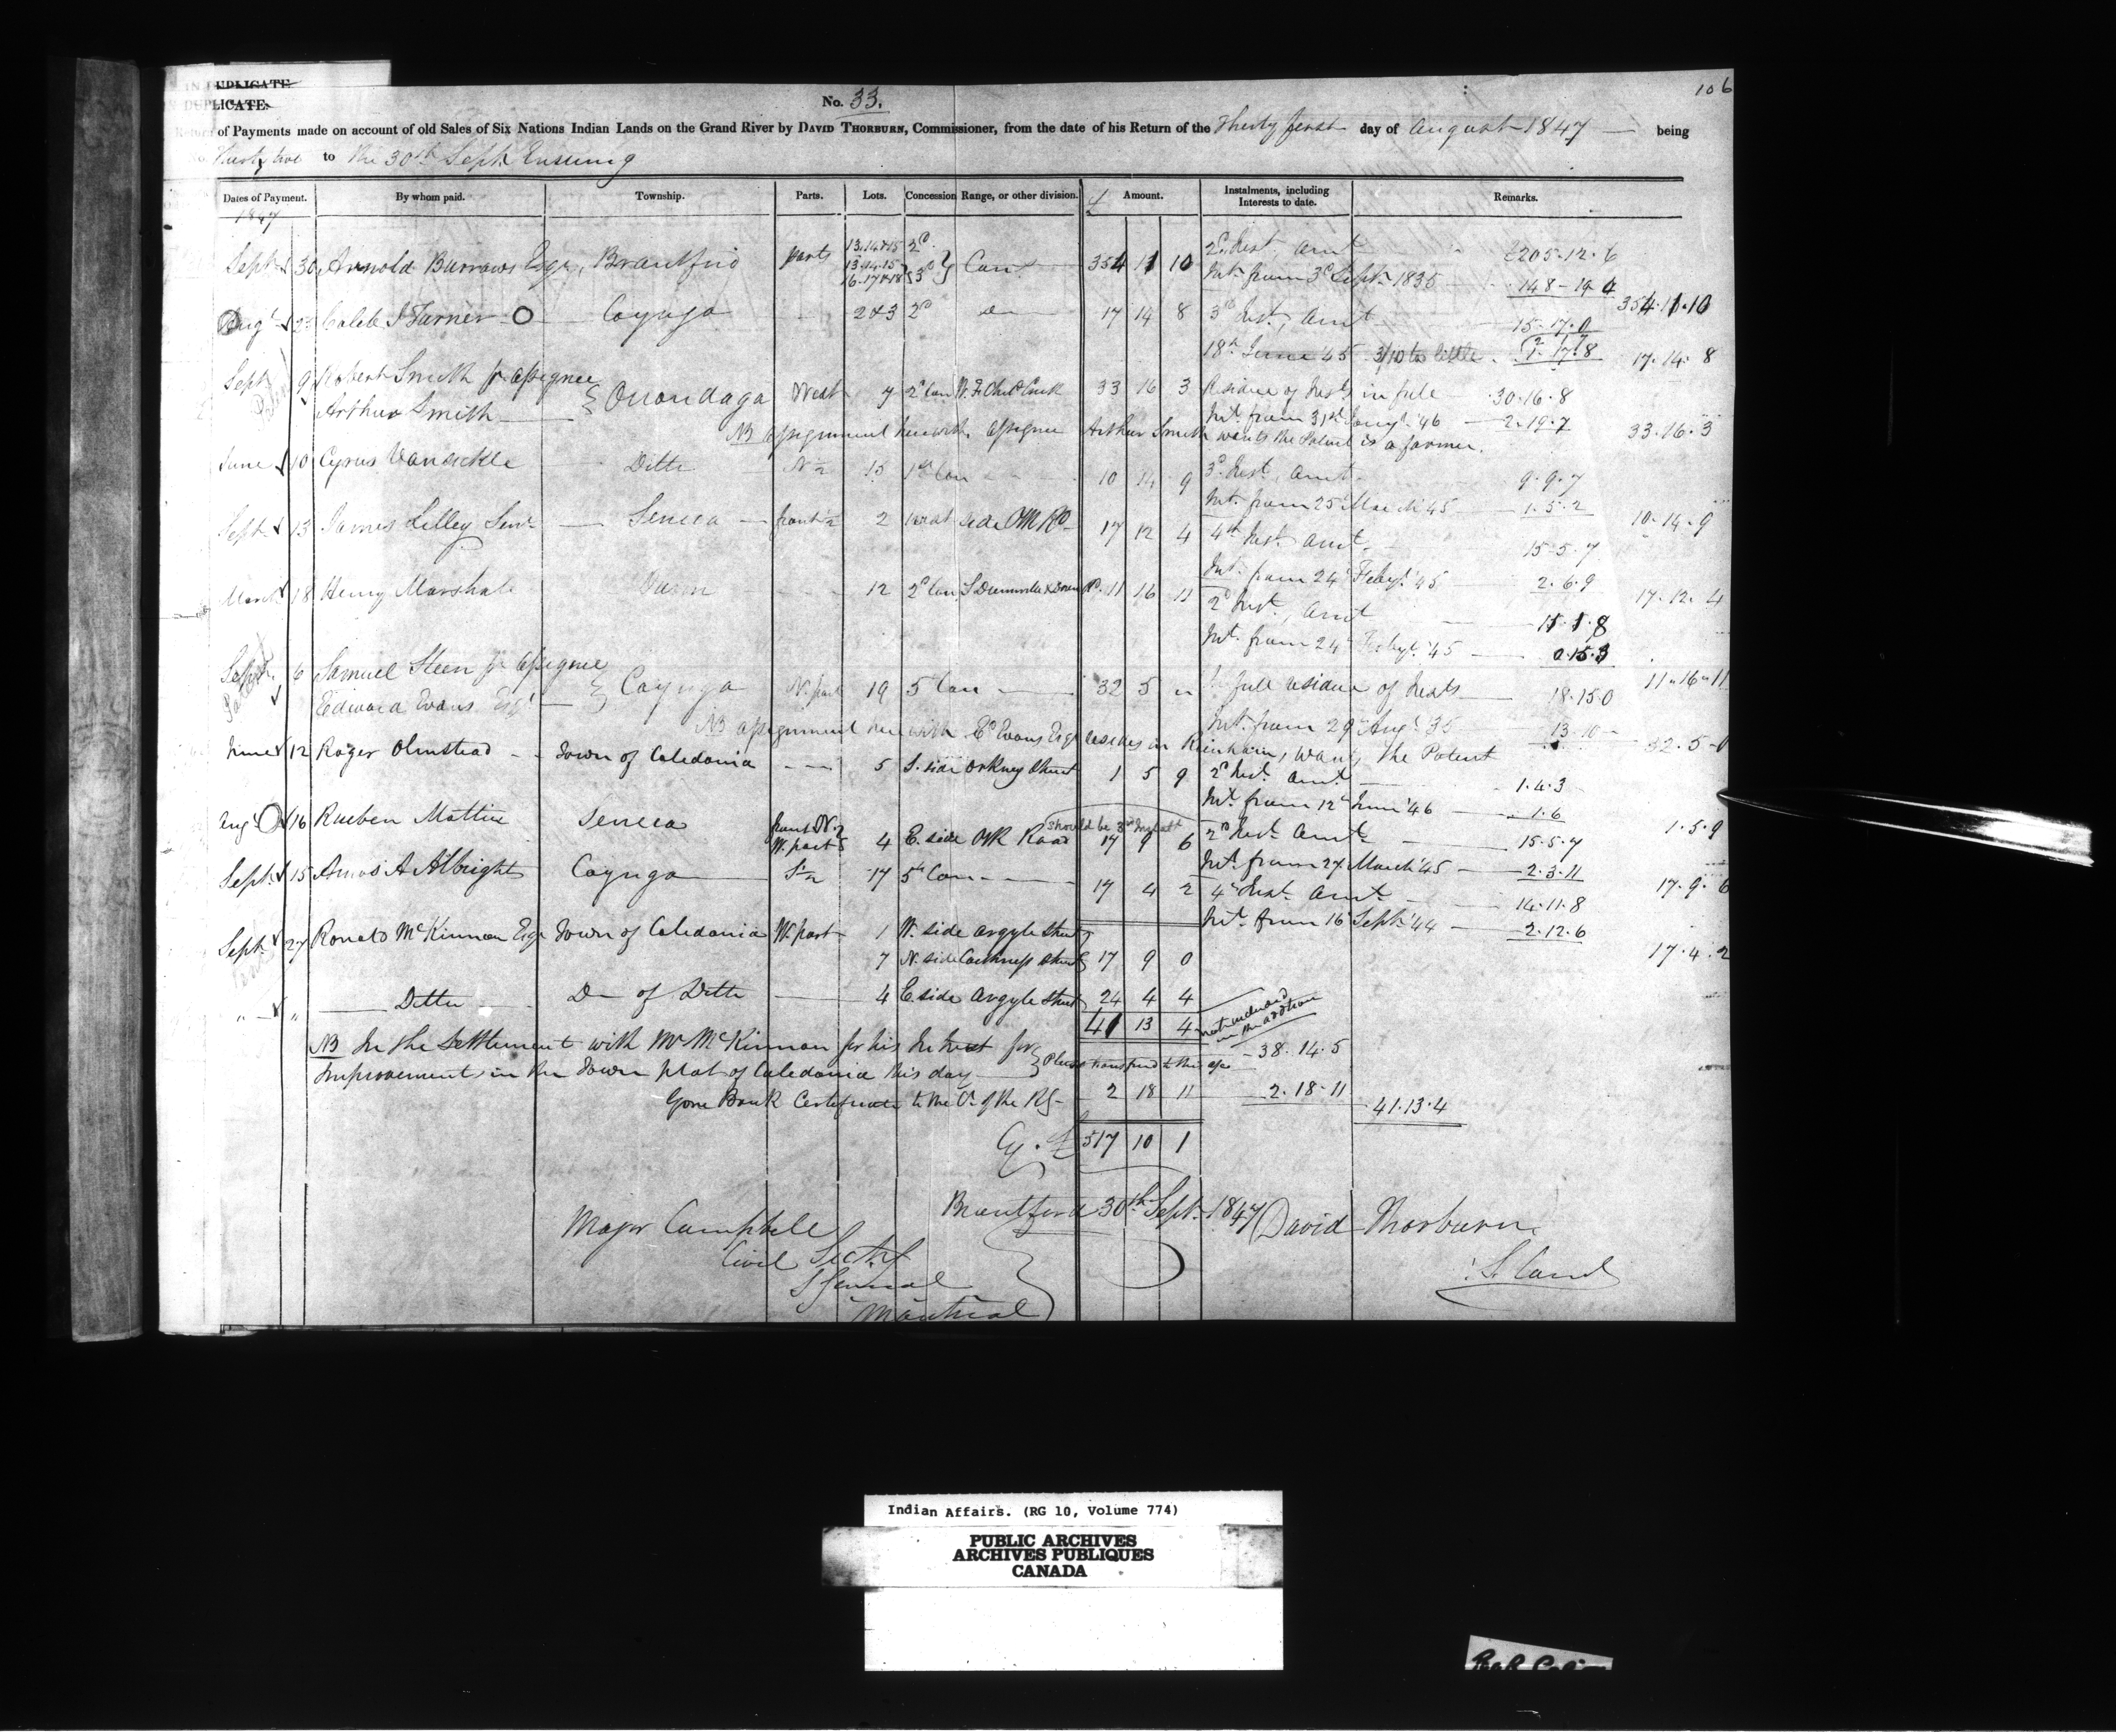 106
IN DUPLICATE
DUPLICATE.
No. 33.
Return of Payments made on account of old Sales of Six Nations Indian Lands on the Grand River by DAVID THORBURN, Commissioner, from the date of his Return of the Thirty first day of August 1847 — being
Thirty two to the 30th Sept Ensuing
Dates of Payment. By whom paid. Township. Parts. Lots. Concession Range, or other division. £ Amount. Instalments, including Interests to date. Remarks.
1847
Sept 30 Arnold Burrows Esqr, Brantford parts 13.14&15 2d
13.14.15 16.17&18 3d Con 354 11 10 2d Inst. Amt £205.12.6
Int. from 3d Sept. 1835 148-19 4
354.11.10
Augt 23 Caleb J Turner Cayuga 2&3 2d do 17 14 8 3d Inst, Amt 15-17.0
18th June 45 3/10 too little 1.17.8 17.14.8
Sept 9 Robert Smith pr assignee
Arthur Smith Onondaga West 7 2d Con 33 16 3 Residue of Insts in full 30.16.8
Int. from 31st Jany. '46 2.19.7 33.16.3
NB assignment herewith assignee Arthur Smith wants the Patent is a farmer.
June 10 Cyrus Vansickle Ditto N ½ 15 1st Con 10 14 9 3d Inst, Amt. 9.9.7
Int. from 25 March 45 1.5.2 10.14.9
Sept 13 James Lilley Senr Seneca front ½ 2 West side OM Rd 17 12 4 4th Inst. Amt. 15-5.7
Int. from 24 Feby. '45 2.6.9 17.12.4
March 18 Henry Marshall Dunn 12 2d Con, S Drummville & Dover Rd. 11 16 11 2d Inst., Amt 11.1.8
Int. from 24 Feby. '45 0.15.3
11"16"11
Sept. 6 Samuel Steen pr assignee
Edward Evans Esqr Cayuga N. part 19 5 Con 32 5 " In full residue of Insts 18.15.0
Int. from 29 Aug. '35 13.10 32.5-0
NB assignment herewith Ed Evans Esqr resides in, wants the Patent
June 12 Roger Olmstead Town of Caledonia 5 S. side Orkney Street 1 5 9 2d Inst. Amt. 1.4.3
Int. from 12 June '46 1.6
1.5.9
Aug 16 Rueben Mattice Seneca front N. ½
W. part 4 E. side OM Road should be 3rd Instalt 17 9 6 2d Inst. Amt. 15.5.7
Int. from 27 March '45 2.3.11 17.9.6
Sept. 15 Amos A Albright Cayuga S ½ 17 5th Con 17 4 2 4th Inst. Amt. 14.11.8
Int. from 16 Sept. '44 2.12.6
17.4.2
Sept. 27 Ronald McKinnon Esqr Town of Caledonia W. part 1 W. side Argyle Street
7 N. side Caithness Street 17 9 0
" " Ditto Do of Ditto 4 E. side Argyle Street 24 4 4
41 13 4 not included in the addition
NB In the Settlement with Mr McKinnon for his Interest for
Improvements in the Town plot of Caledonia this day Please transfund to this ofce 38.14.5
Gore Bank Certificate to the Cr. of the RG 2 18 11 2.18-11 41.13.4
Cy. £ 517 10 1
Brantford 30th Sept. 1847 David Thorburn
Major Campbell
Civil Secty
S General
Montreal
Indian Affairs. (RG 10, Volume 774)
PUBLIC ARCHIVES
ARCHIVES PUBLIQUES
CANADA